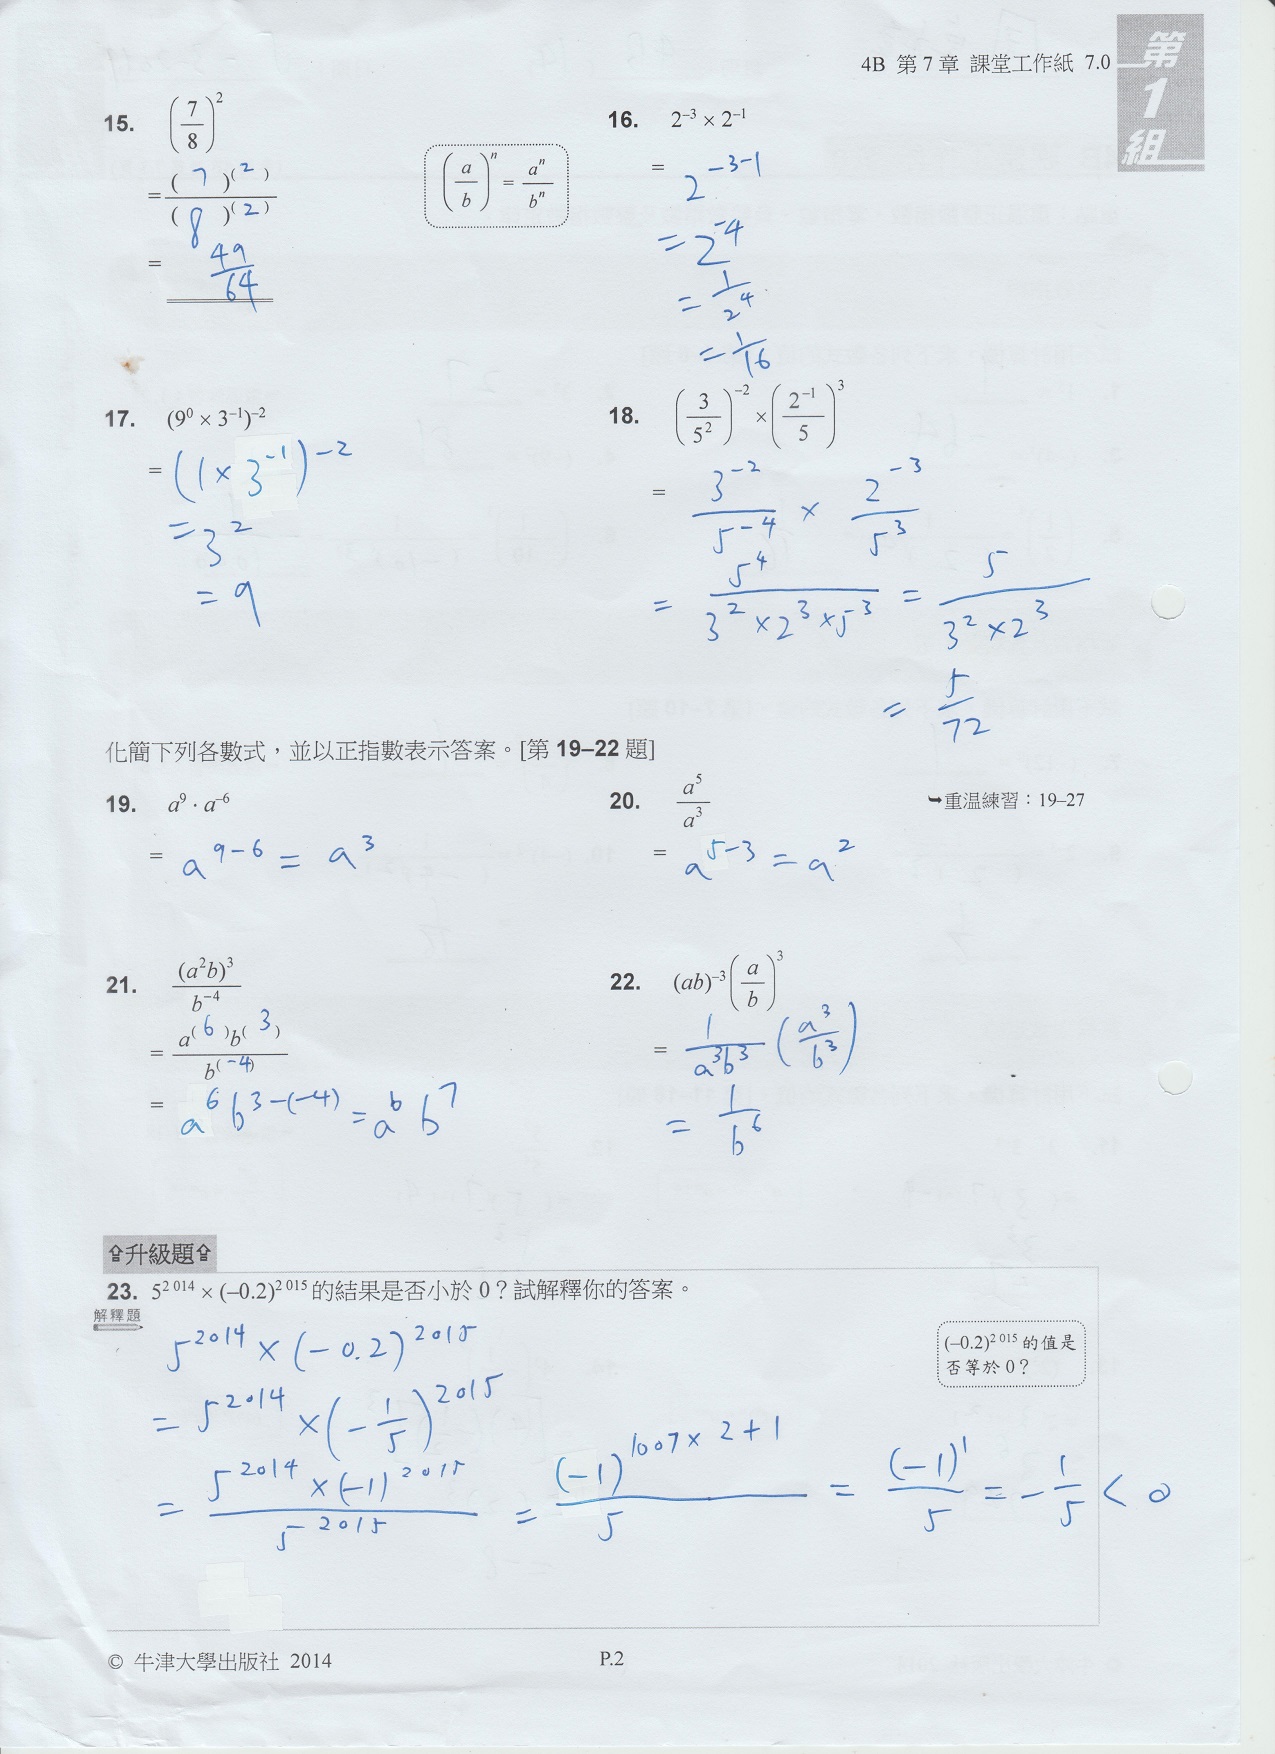 4B 第 7 章 課堂工作紙 7.0
第1組
15. (7/8)²
= (7)^(2) / (8)^(2)
= 49/64
(a/b)ⁿ = aⁿ/bⁿ
16. 2⁻³ × 2⁻¹
= 2⁻³⁻¹
= 2⁻⁴
= 1/2⁴
= 1/16
17. (9⁰ × 3⁻¹)⁻²
= (1 × 3⁻¹)⁻²
= 3²
= 9
18. (3/5²)⁻² × (2⁻¹/5)³
= 3⁻²/5⁻⁴ × 2⁻³/5³
= 5⁴/(3² × 2³ × 5³) = 5/(3² × 2³)
= 5/72
化簡下列各數式，並以正指數表示答案。[第 19–22 題]
19. a⁹ · a⁻⁶
= a⁹⁻⁶ = a³
20. a⁵/a³
➥重温練習：19–27
= a⁵⁻³ = a²
21. (a²b)³/b⁻⁴
= a^(6) b^(3) / b^(-4)
= a⁶ b^(3-(-4)) = a⁶ b⁷
22. (ab)⁻³(a/b)³
= 1/(a³b³) (a³/b³)
= 1/b⁶
⇧升級題⇧
23. 5^2 014 × (–0.2)^2 015 的結果是否小於 0？試解釋你的答案。
解釋題
(–0.2)^2 015 的值是
否等於 0？
5^2014 × (-0.2)^2015
= 5^2014 × (-1/5)^2015
= 5^2014 × (-1)^2015 / 5^2015 = (-1)^(1007×2+1) / 5 = (-1)^1 / 5 = -1/5 < 0
© 牛津大學出版社 2014
P.2